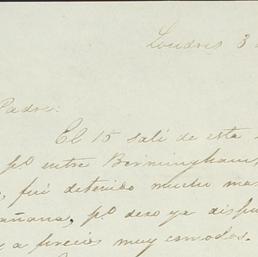 Londres 3
Padre:
El 15 salí de esta
pº entre Birmingham,
, fué detenido mucho mas
añana, pº dejo ya dispu
y a precios muy comodos.